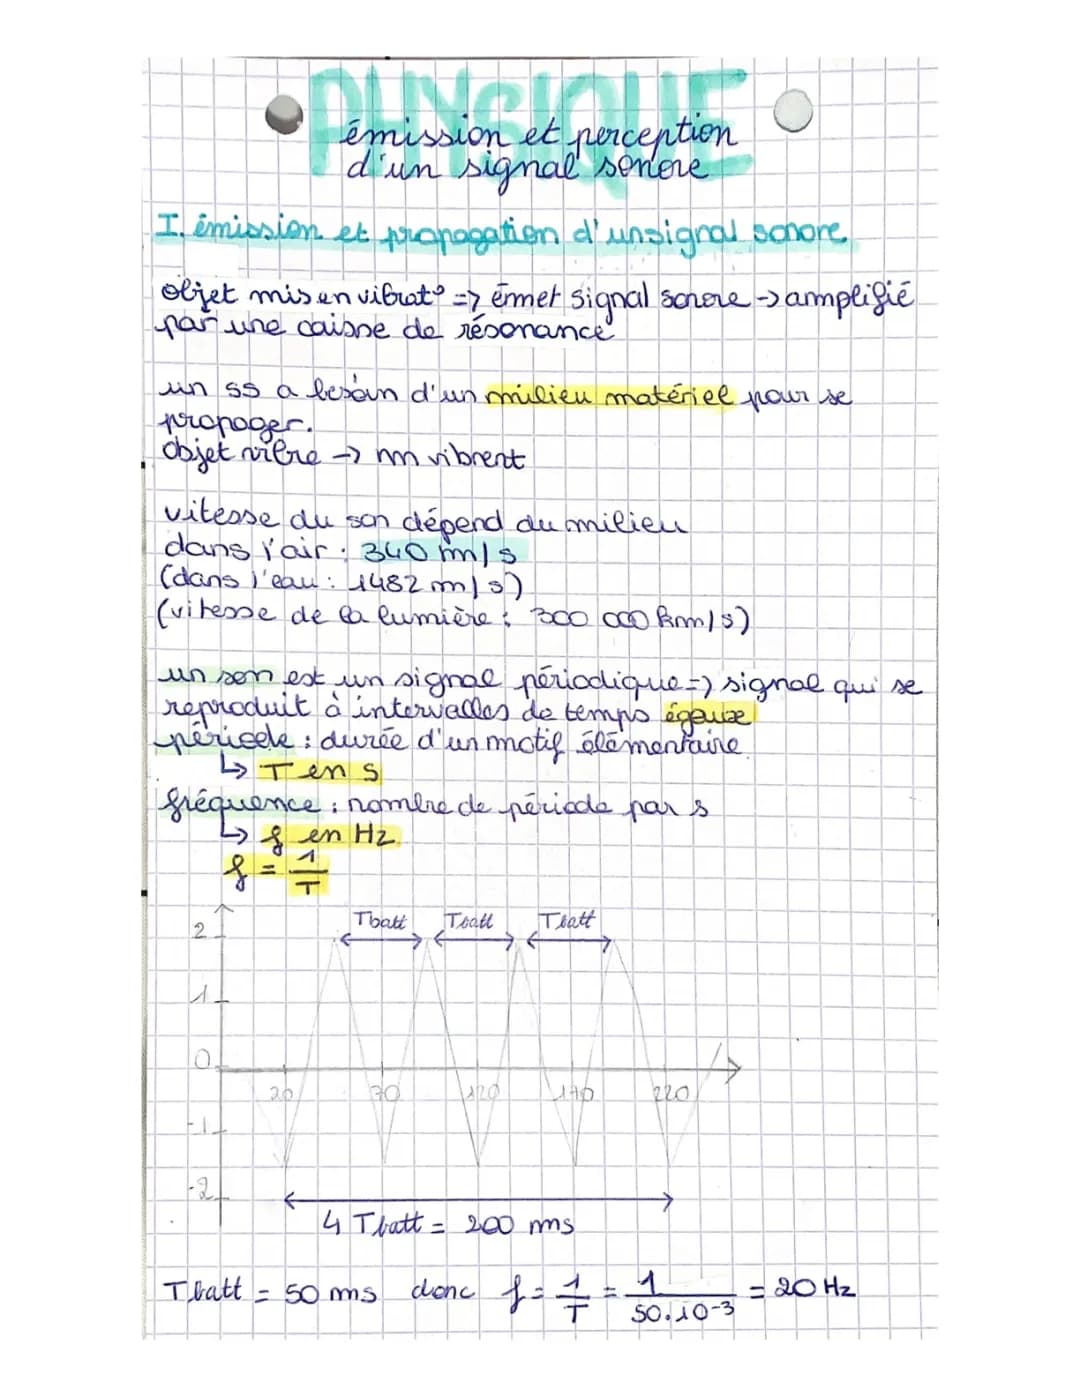 PHYSIQUE
émission et perception
d'un signal sonore
I. émission et propagation d'un signal sonore
objet mis en vibrat° => émet signal sonore -> ammplifié
par une caisse de résonance
un ss a besoin d'un milieu matériel pour se
propager.
objet vibre -> mm vibrent
vitesse du son dépend du milieu
dans l'air : 340 m/s
(dans l'eau : 1482 m/s)
(vitesse de la lumière : 300 000 km/s)
un son est un signal périodique => signal qui se
reproduit à intervalles de temps égaux
période : durée d'un motif élémentaire
↳ T en s
fréquence : nombre de période par s
↳ f en Hz
f = 1/T
Tbatt Tbatt Tbatt
2
1
0
20 70 120 170 220
-1
-2
4 Tbatt = 200 ms
Tbatt = 50 ms donc f = 1/T = 1/50.10-3 = 20 Hz